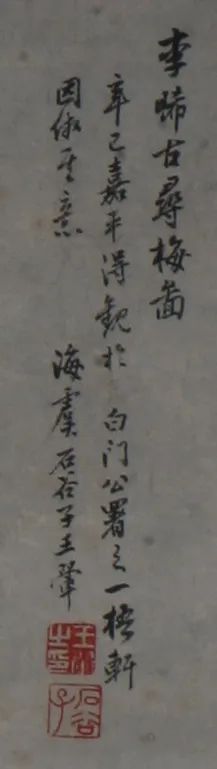 李晞古尋梅圖
辛巳嘉平得觀於白门公署之一梧軒
因倣其意 海虞石谷子王翬
王翬之印
石谷子